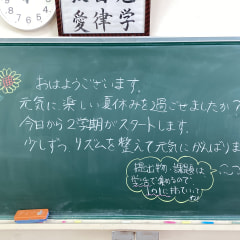 愛律学
おはようございます。
元気に楽しい夏休みを過ごせましたか?
今日から2学期がスタートします。
少しずつリズムを整えて元気にがんばりま
提出物・課題は
学活で集めるので